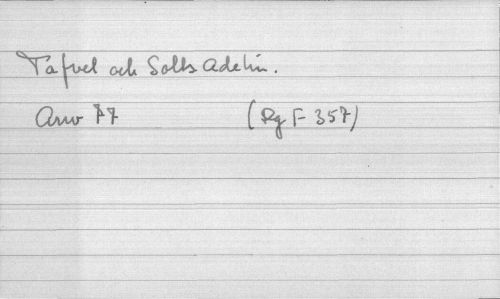 Tafvel och Solls Adelin.
Arw 77 (Rg F 357)